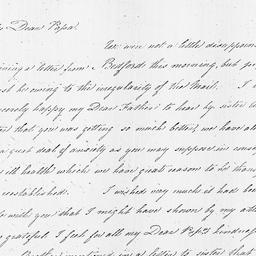 Dear Papa
We were not a little disappoin
ining a letter from Bedford this morning, but pr
it be owing to the irregularity of the Mail. I
cerely happy my Dear Father to hear by sister
that you was getting so much better, we have al
a great deal of anxiety as you may suppose in conse
ill health which we have great reason to be than
reestablished. I wished very much it had been
with you that I might have shown by my atte
grateful I feel for all my Dear Papa's kindness
mentioned in a letter to sister that